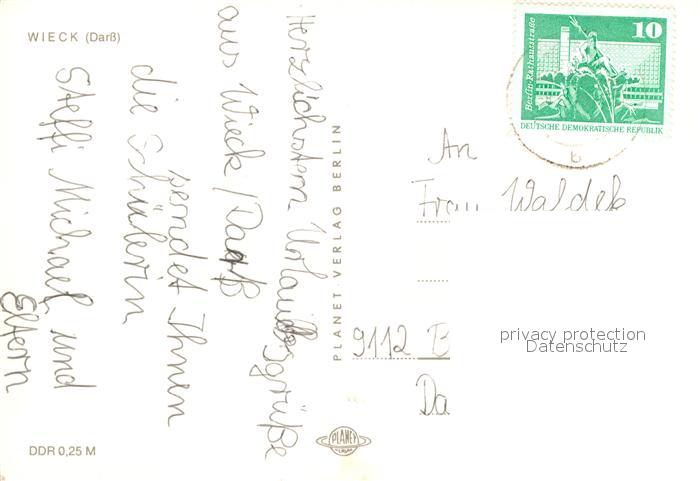 WIECK (Darß)
Herzlichstem Urlaubsgrüße
aus Wieck / Darß
sendet Ihnen
die Schülerin
Steffi Michael und
Eltern
DDR 0,25 M
PLANET-VERLAG BERLIN
PLANET
VERLAG
10
Berlin-Rathausstraße
DEUTSCHE DEMOKRATISCHE REPUBLIK
b
An
Frau Waldek
9112 B
Da
privacy protection
Datenschutz